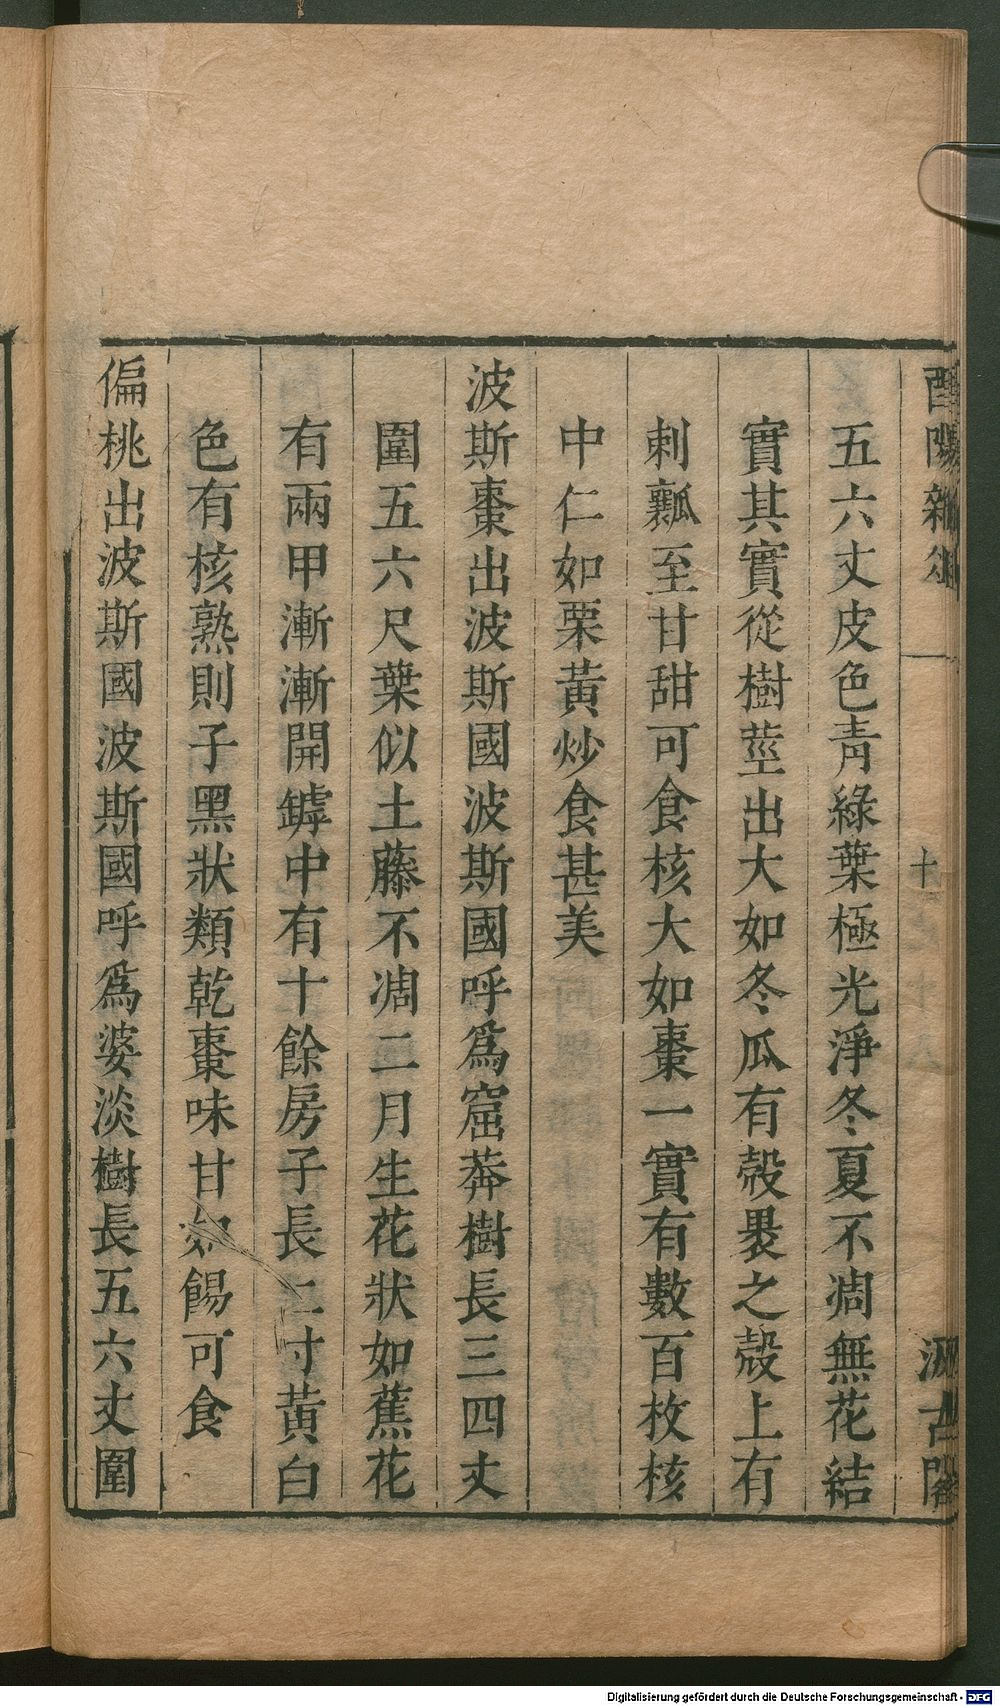 酉陽雜俎 十 汲古閣
五六丈皮色青綠葉極光淨冬夏不凋無花結
實其實從樹莖出大如冬瓜有殼褁之殼上有
刺瓤至甘甜可食核大如棗一實有數百枚核
中仁如栗黃炒食甚美
波斯棗出波斯國波斯國呼爲窟莽樹長三四丈
圍五六尺葉似土藤不凋二月生花狀如蕉花
有兩甲漸漸開罅中有十餘房子長二寸黃白
色有核熟則子黑狀類乾棗味甘如餳可食
偏桃出波斯國波斯國呼爲婆淡樹長五六丈圍
Digitalisierung gefördert durch die Deutsche Forschungsgemeinschaft - DFG